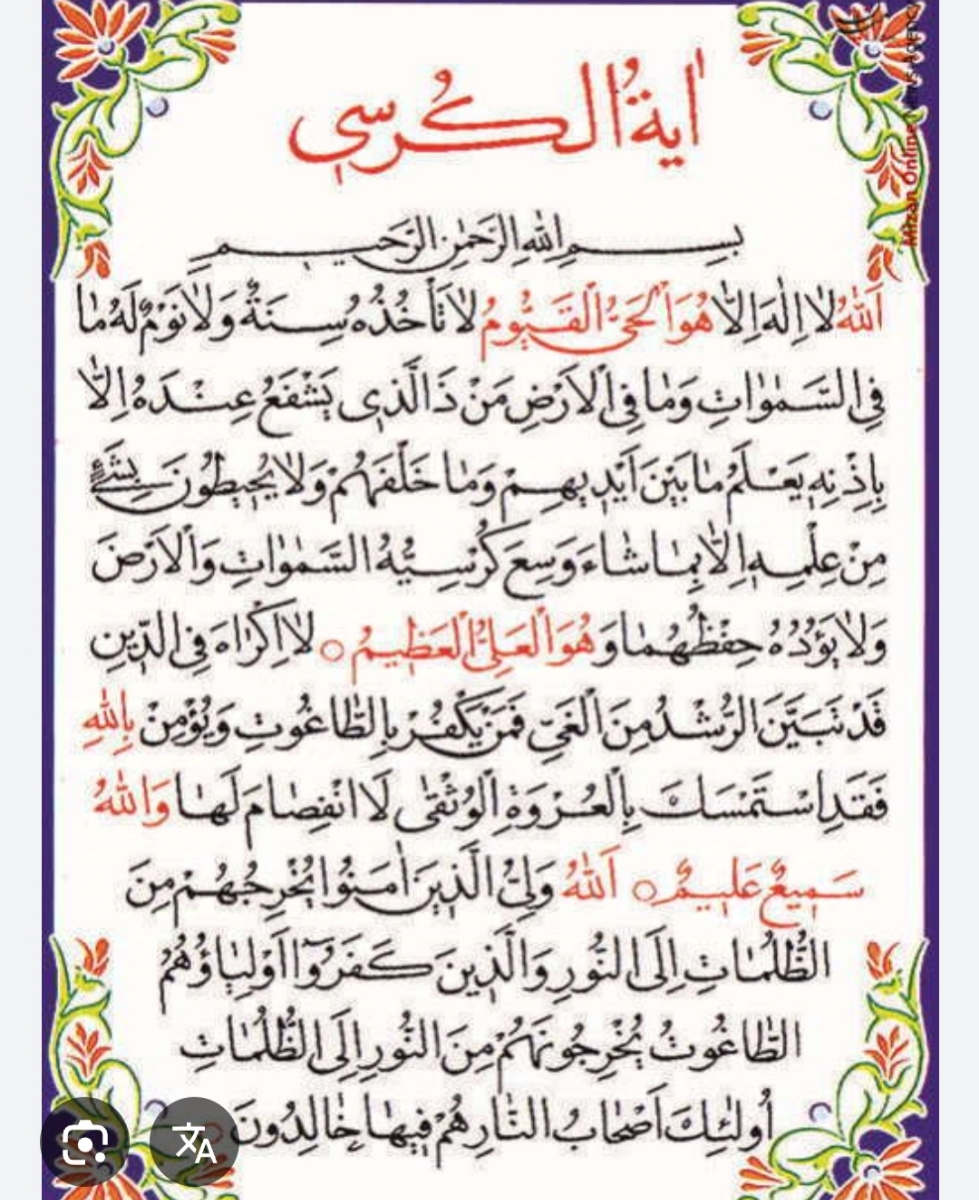 اٰيةُ الكُرسي
بِسمِ اللهِ الرَّحمٰنِ الرَّحيمِ
اَللهُ لٰا اِلٰهَ اِلاّٰ هُوَ الْحَىُّ الْقَيُّومُ لٰا تَأْخُذُهُ سِنَةٌ وَلٰا نَوْمٌ لَهُ مٰا
فِى السَّمٰوٰاتِ وَمٰا فِى الْاَرْضِ مَنْ ذَا الَّذى يَشْفَعُ عِنْدَهُ اِلاّٰ
بِاِذْنِهِ يَعْلَمُ مٰا بَيْنَ اَيْديهِمْ وَمٰا خَلْفَهُمْ وَلٰا يُحيطُونَ بِشَىْءٍ
مِنْ عِلْمِهِ اِلاّٰ بِمٰا شٰاءَ وَسِعَ كُرْسِيُّهُ السَّمٰوٰاتِ وَالْاَرْضَ
وَلٰا يَؤُدُهُ حِفْظُهُمٰا وَ هُوَ الْعَلِىُّ الْعَظيمُ ○ لٰا اِكْرٰاهَ فِى الدّينِ
قَدْ تَبَيَّنَ الرُّشْدُ مِنَ الْغَىِّ فَمَنْ يَكْفُرْ بِالطّٰاغُوتِ وَيُؤْمِنْ بِاللهِ
فَقَدِ اسْتَمْسَكَ بِالْعُرْوَةِ الْوُثْقٰى لَا انْفِصٰامَ لَهٰا وَاللهُ
سَميعٌ عَليمٌ ○ اَللهُ وَلِىُّ الَّذينَ اٰمَنُوا يُخْرِجُهُمْ مِنَ
الظُّلُمٰاتِ اِلَى النُّورِ وَالَّذينَ كَفَرُوٓا اَوْلِيٰاؤُهُمُ
الطّٰاغُوتُ يُخْرِجُونَهُمْ مِنَ النُّورِ اِلَى الظُّلُمٰاتِ
اُولٰئِكَ اَصْحٰابُ النّٰارِ هُمْ فيهٰا خٰالِدُونَ
Mizan Online News Agency